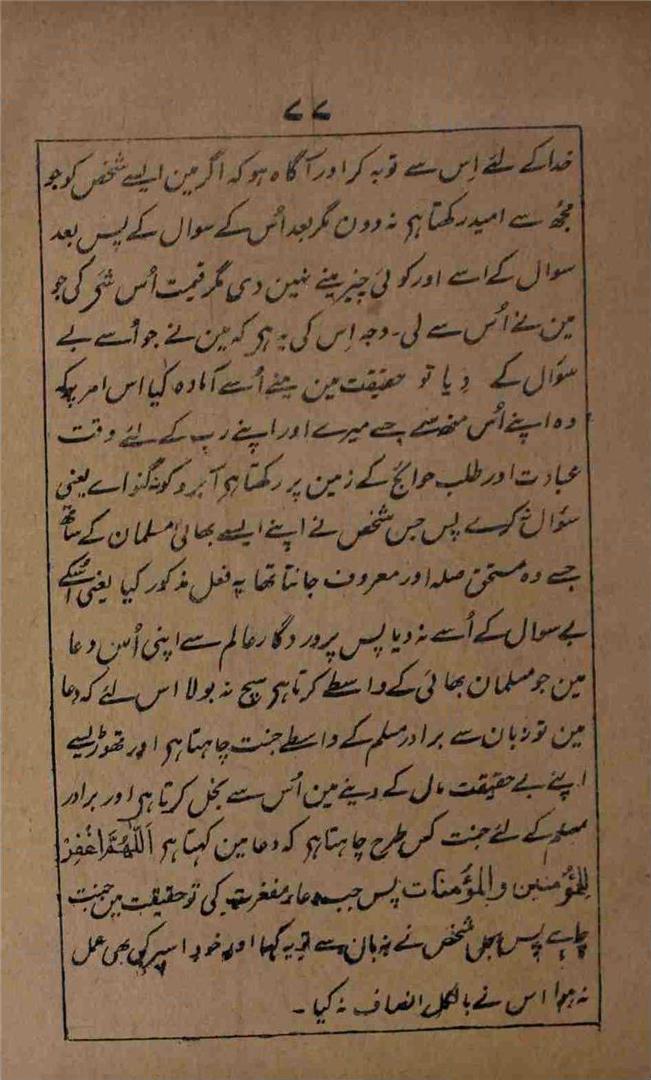 ۷۷
خدا کے لئے اِس سے توبہ کر اور آگاہ ہو کہ اگر مین ایسے شخص کو جو
مجھ سے امید رکھتا ہم نہ دون مگر بعد اُس کے سوال کے پس بعد
سوال کے اسے اور کوئی چیز مینے نہین دی مگر قیمت اُس شی کی جو
مین نے اُس سے لی۔ وجہ اِس کی یہ ہم کہ مین نے جو اُسے بے
سوال کے دِیا تو حقیقت مین مینے اُسے آمادہ کیا اس امر پر کہ
وہ اپنے اُس منھ سے جسے میرے اور اپنے رب کے لئے وقت
عبادت اور طلب حوائج کے زمین پر رکھتا ہم آبرو کو نہ گنواے یعنی
سوال نکرے پس جس شخص نے اپنے ایسے بھائی مسلمان کے ساتھ
جسے وہ مستحق صلہ اور معروف جانتا تھا یہ فعل مذکور کیا یعنی اُسکے
بے سوال کے اُسے نہ دیا پس پروردگار عالم سے اپنی اُس دعا
مین جو مسلمان بھائی کے واسطے کرتا ہم سچ نہ بولا اس لئے کہ دعا
مین تو زبان سے برادر مسلم کے واسطے جنت چاہتا ہم اور تھوڑیسے
اپنے بے حقیقت مال کے دینے مین اُس سے بخل کرتا ہم اور برادر
مسلم کے لئے جنت کس طرح چاہتا ہم کہ دعا مین کہتا ہم اَللّٰھُمَّ اغْفِرْ
لِلْمُؤْمِنِیْنَ وَالْمُؤْمِنَات پس جب دعاء مغفرت کی تو حقیقت مین جنت
چاہے پس جس شخص نے زبان سے تو یہ کہا اور خود اسپر کچھ بھی عمل
نہ ہوا اس نے بالکل انصاف نہ کیا۔